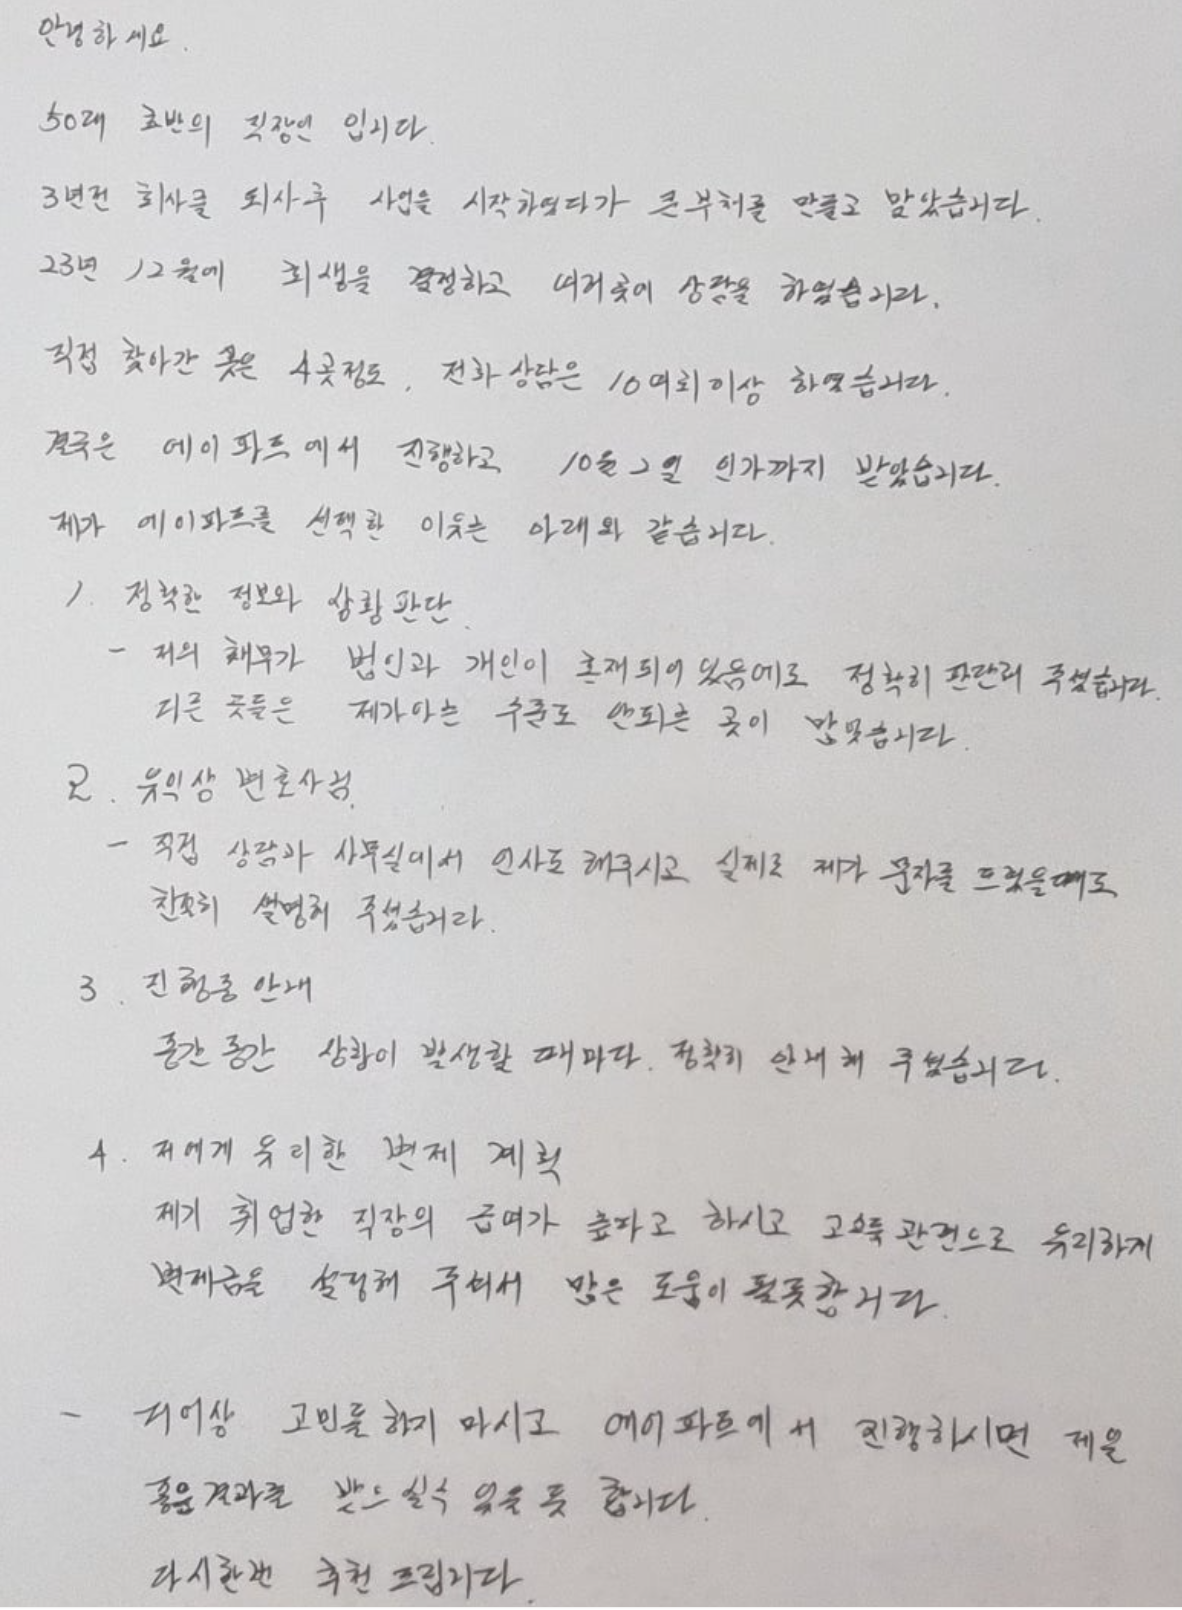 안녕하세요.
50대 초반의 직장인 입니다.
3년전 회사를 퇴사후 사업을 시작하였다가 큰부채를 만들고 말았습니다.
23년 12월에 회생을 결정하고 여러곳에 상담을 하였습니다.
직접 찾아간 곳은 4곳정도, 전화상담은 10여회이상 하였습니다.
결국은 에이파트에서 진행하고 10월 2일 인가까지 받았습니다.
제가 에이파트를 선택한 이웃는 아래와 같습니다.
1. 정확한 정보와 상황판단.
- 저의 채무가 법인과 개인이 혼재되어 있음에도 정확히 판단해 주셨습니다.
다른 곳들은 제가아는 수준도 안되는 곳이 많았습니다.
2. 유익상 변호사님.
- 직접 상담과 사무실에서 인사도 해주시고 실제로 제가 문자를 드렸을때도
친절히 설명해 주셨습니다.
3. 진행중 안내
중간중간 상황이 발생할 때마다. 정확히 안내해 주셨습니다.
4. 저에게 유리한 변제 계획
제가 취업한 직장의 급여가 높다고 하시고 고요 관건으로 유리하게
변제금을 설정해 주셔서 많은 도움이 될듯합니다.
- 더이상 고민들하지 마시고 에이파트에서 진행하시면 제일
좋은결과를 받으실수 있을듯 합니다.
다시한번 추천 드립니다.